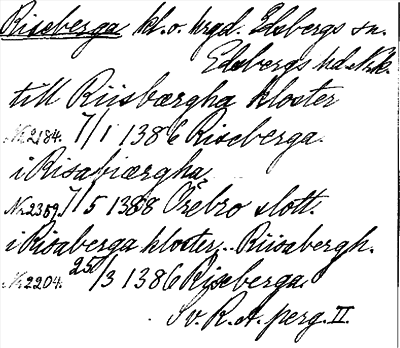 Riseberga kl. o. hrgd. Edsbergs sn.
Edsbergs hd. Nke.
till Riisbærgha kloster
Nr 2184. 7/1 1386 Riseberga.
i Risabiærgha
Nr 2359. 7/5 1388 Örebro slott.
i Risaberga kloster, Riisabergh.
Nr 2204. 25/3 1386 Riseberga
Sv. R. A. perg. II.